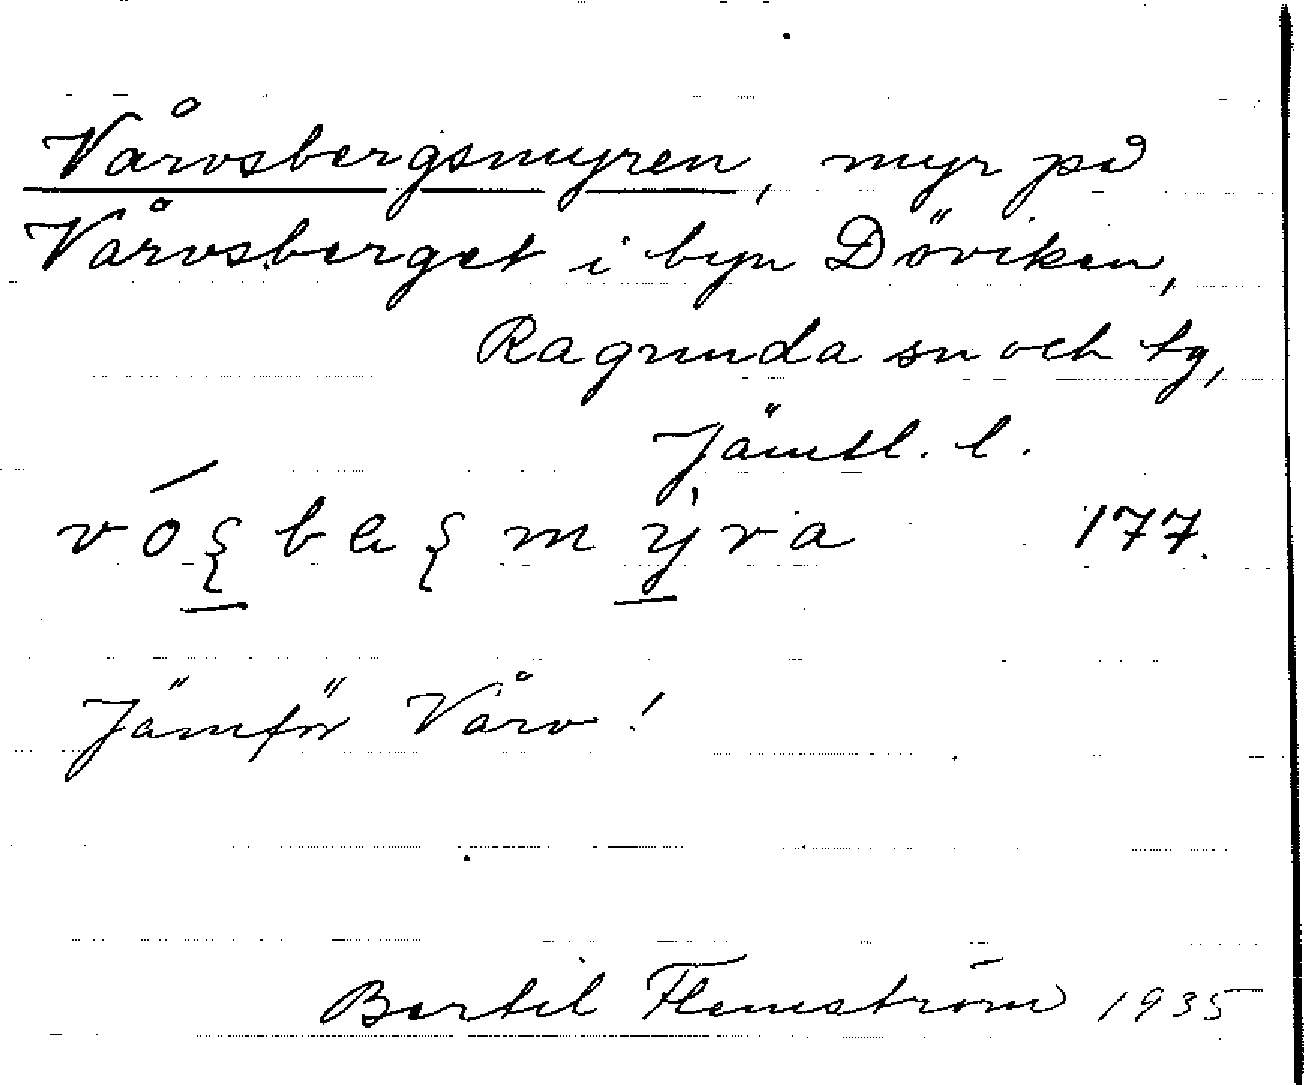 Vårvsbergsmyren, myr på
Vårvsberget i byn Döviken,
Ragunda sn och tg,
Jämtl. l.
177.
Jämför Vårv!
Bertil Flemström 1935